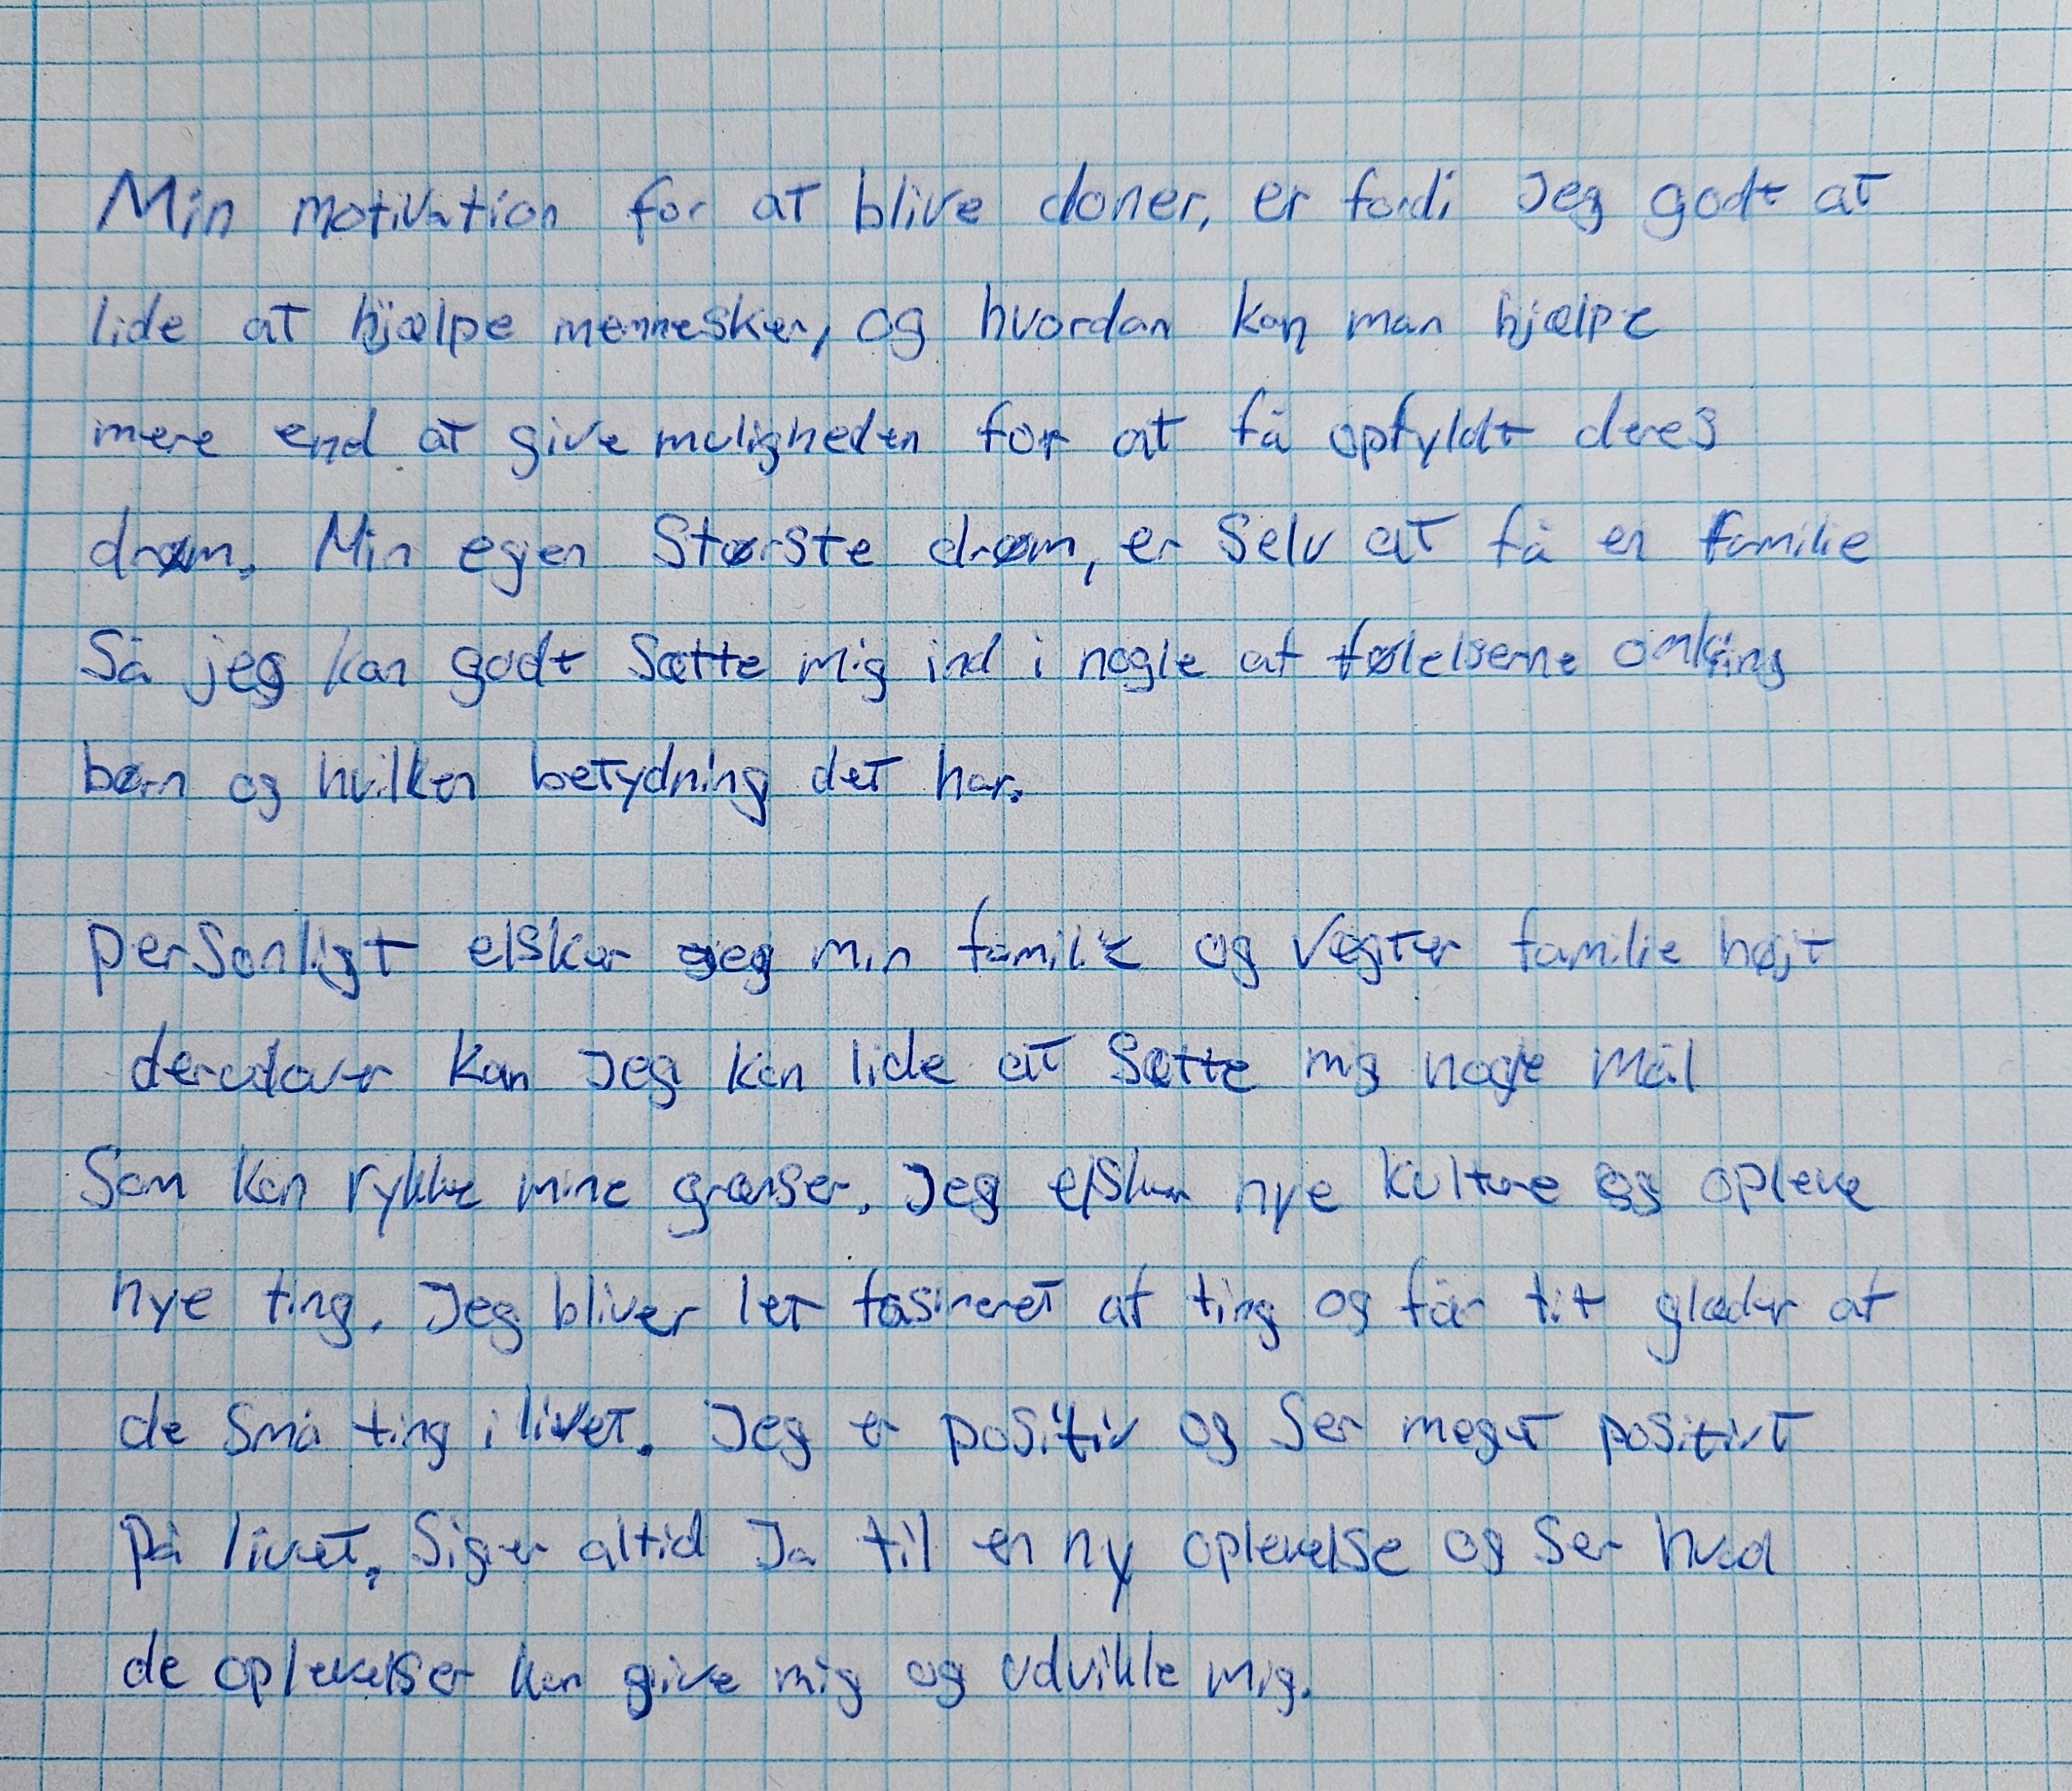 Min motivation for at blive doner, er fordi Jeg godt at
lide at hjælpe mennesker, og hvordan kan man hjælpe
mere end at give muligheden for at få opfyldt deres
drøm. Min egen Største drøm, er Selv at få en familie
Så jeg kan godt Sætte mig ind i nogle af følelserne omkring
børn og hvilken betydning det har.
personligt elsker jeg min familie og vægter familie højt
derudover kan Jeg kan lide at Sætte mig nogle mål
Som kan rykke mine grænser. Jeg elsker nye kulture og opleve
nye ting. Jeg bliver let fasineret af ting og får tit glæder af
de Små ting i livet. Jeg er positiv og Ser meget positivt
på livet. Siger altid Ja til en ny oplevelse og Ser hvad
de oplevelser kan give mig og udvikle mig.